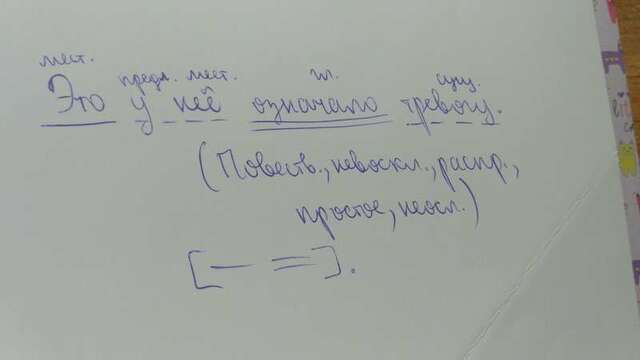 мест. предл. мест. гл. сущ.
Это у неё означало тревогу.
(Повеств., невоскл., распр.,
простое, неосл.)
[— =].